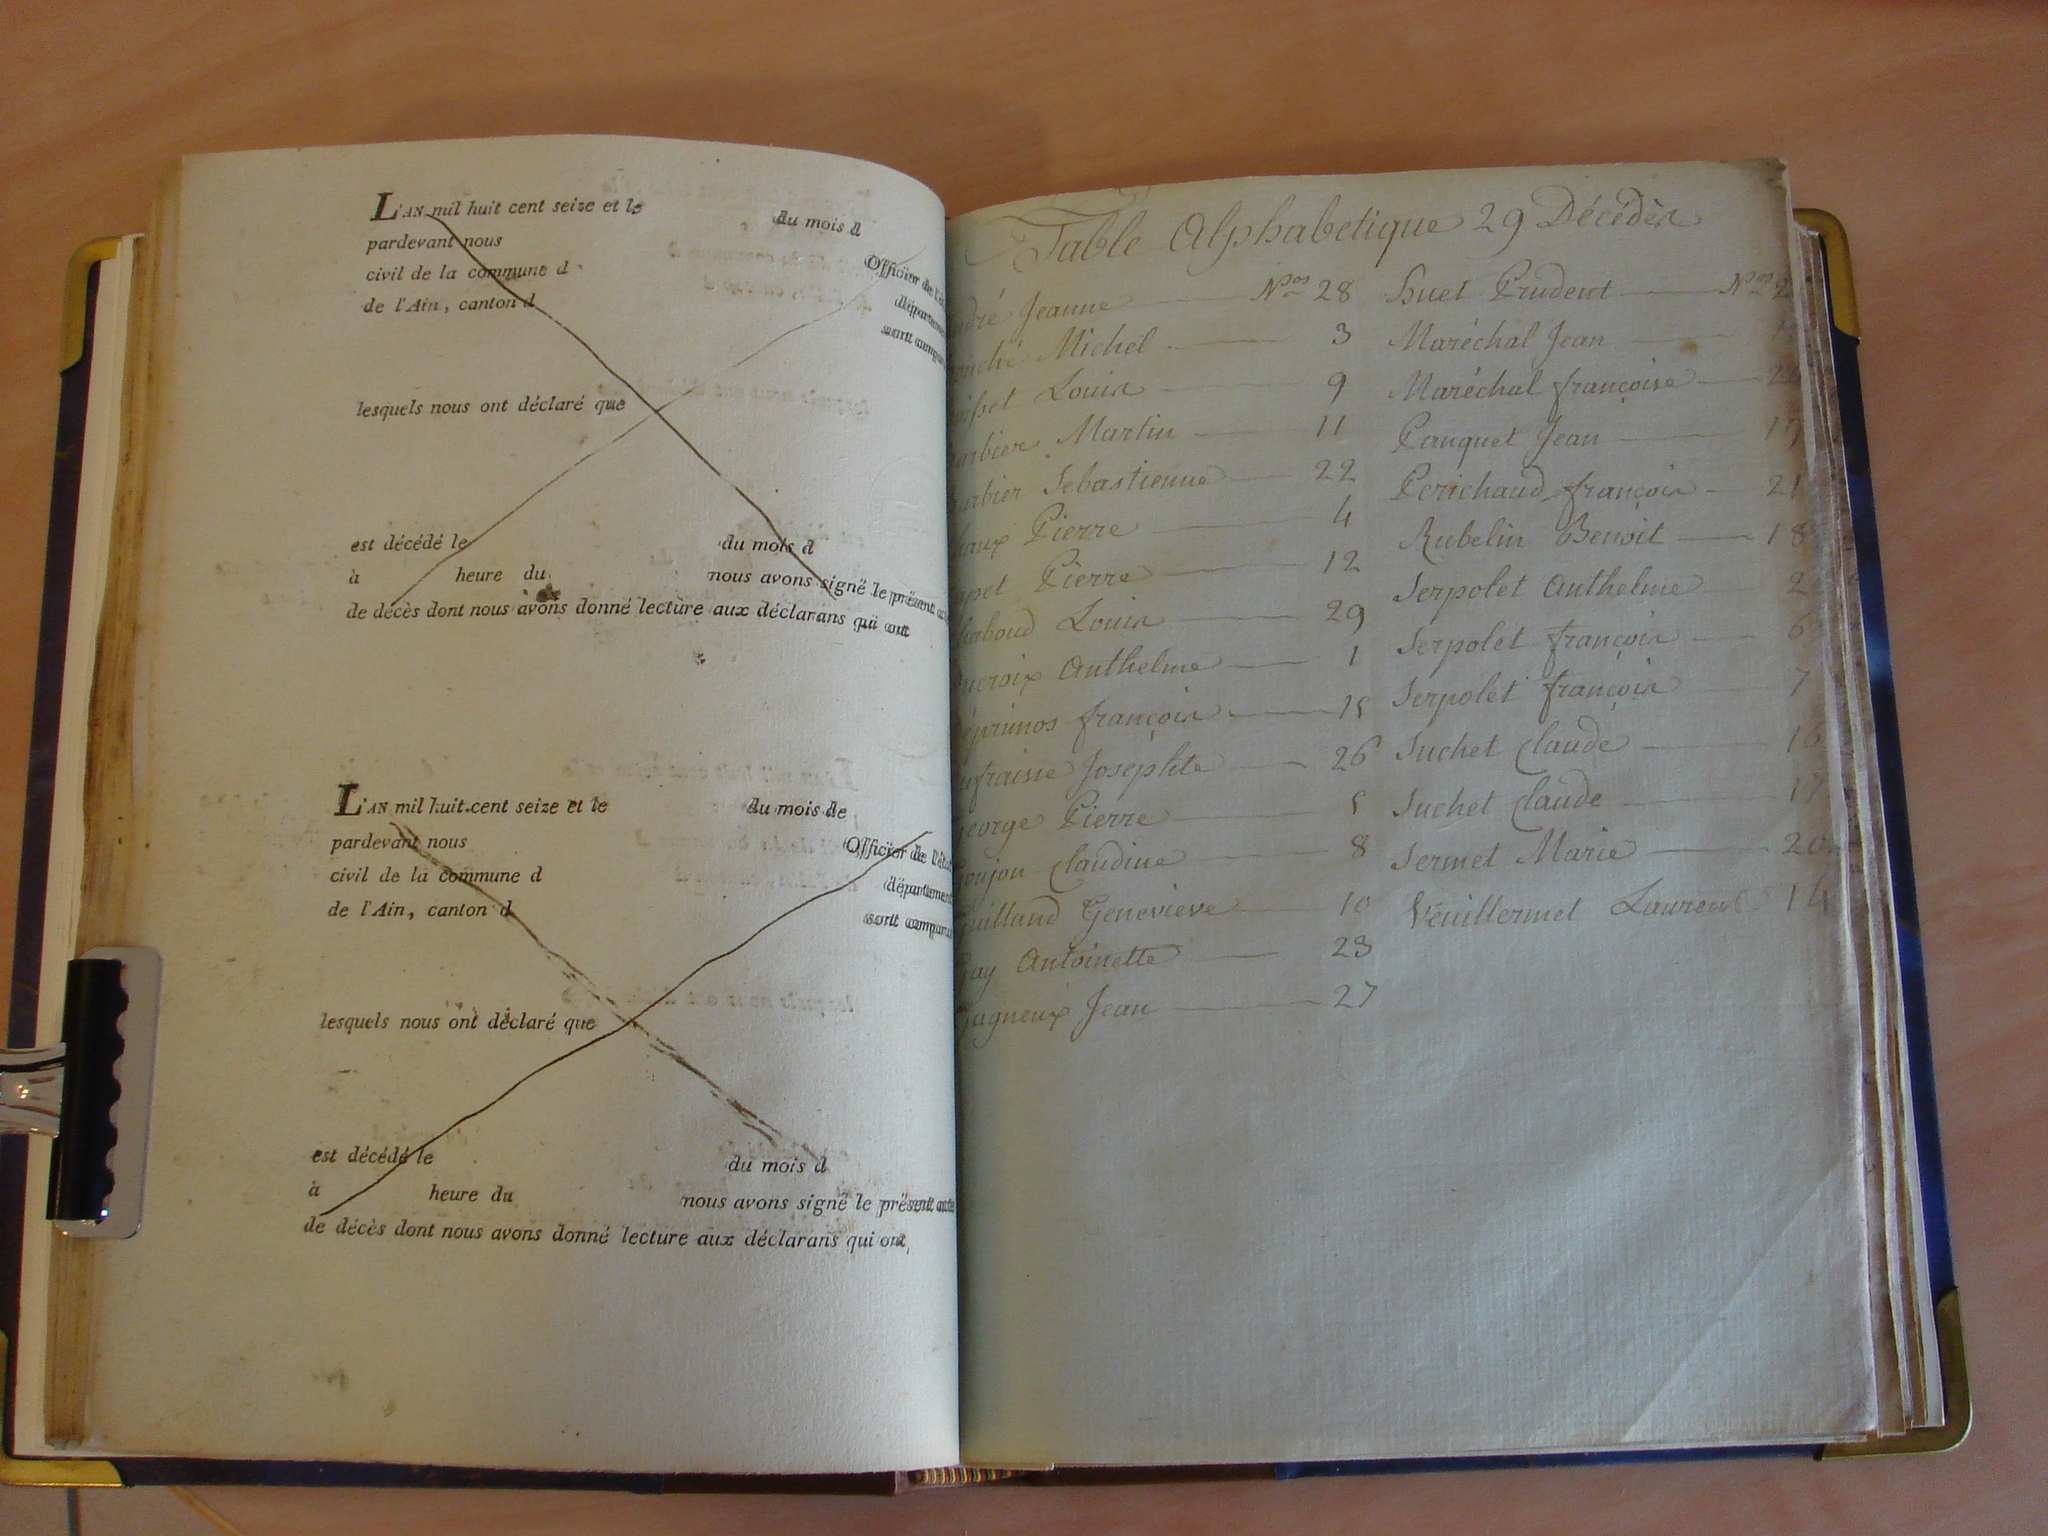 L'AN mil huit cent seize et le du mois d
pardevant nous Officier de l'
civil de la commune d
de l'Ain, canton d
lesquels nous ont déclaré que
est décédé le du mois d
à heure du nous avons signé le présent
de décès dont nous avons donné lecture aux déclarans qui ont
L'AN mil huit cent seize et le du mois de
pardevant nous Officier de
civil de la commune d département
de l'Ain, canton d sont
lesquels nous ont déclaré que
est décédé le du mois d
à heure du nous avons signé le présent acte
de décès dont nous avons donné lecture aux déclarans qui ont
Table Alphabetique 29 Décédés
Jeanne Nos 28
Michel 3
Louis 9
Martin 11
Sebastienne 22
Pierre 4
Pierre 12
Louis 29
Anthelme 1
françois 15
Josephte 26
Pierre 5
Claudine 8
Genevieve 10
Antoinette 23
Jean 27
Huet Prudent Nos
Maréchal Jean
Maréchal françoise
Panquet Jean
Perichaud françois 21
Rubelin Benoit 18
Serpolet Anthelme
Serpolet françois 6
Serpolet françois 7
Suchet Claude 16
Suchet Claude
Sermet Marie 20
Veuillermet Laurent 14